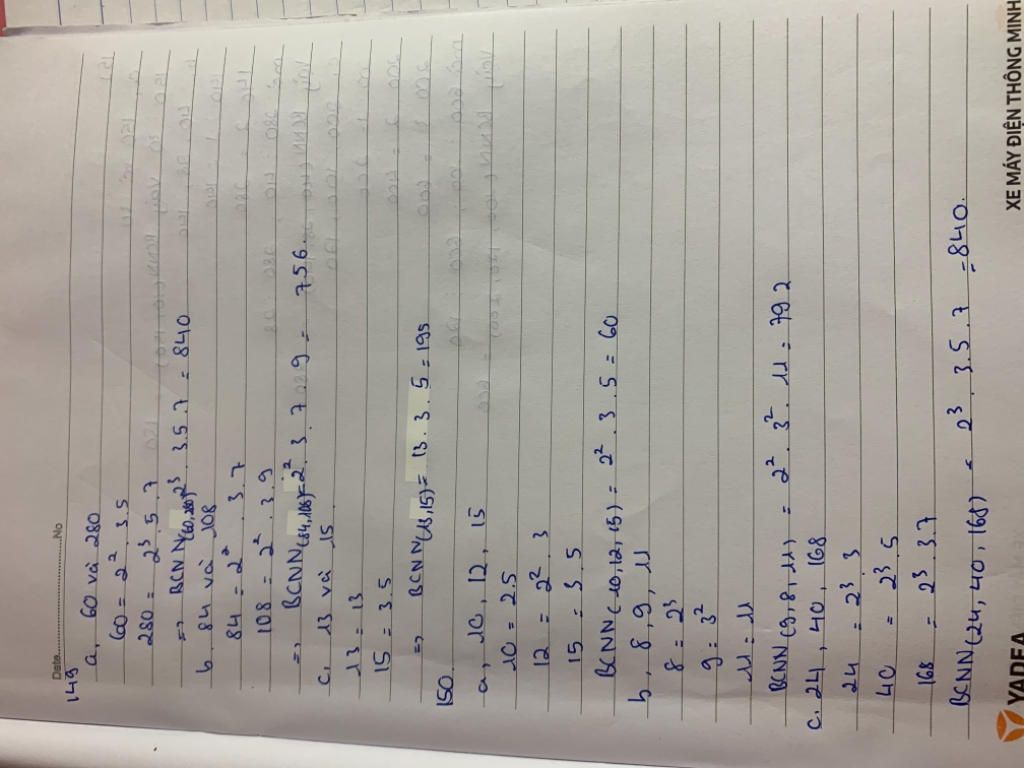 Date.....................No
149
a, 60 và 280
60 = 2² . 3.5
280 = 2³ . 5 . 7
=> BCNN(60,280) 2³ . 3.5.7 = 840
b. 84 và 108
84 = 2² . 3.7
108 = 2² . 3.9
=> BCNN(84,108)=2² . 3 . 7 . 9 = 756.
c, 13 và 15
13 = 13
15 = 3.5
=> BCNN(13,15) = 13 . 3 . 5 = 195
150.
a, 10, 12, 15
10 = 2.5
12 = 2² . 3
15 = 3 . 5
BCNN(10,12,15) = 2² . 3 . 5 = 60
b, 8, 9, 11
8 = 2³
9 = 3²
11 = 11
BCNN(9,8,11) = 2² . 3² . 11 = 792
c. 24, 40, 168
24 = 2³ 3
40 = 2³ . 5
168 = 2³ . 3.7
BCNN(24, 40, 168) = 2³ . 3 . 5 . 7 = 840.
YADEA XE MÁY ĐIỆN THÔNG MINH